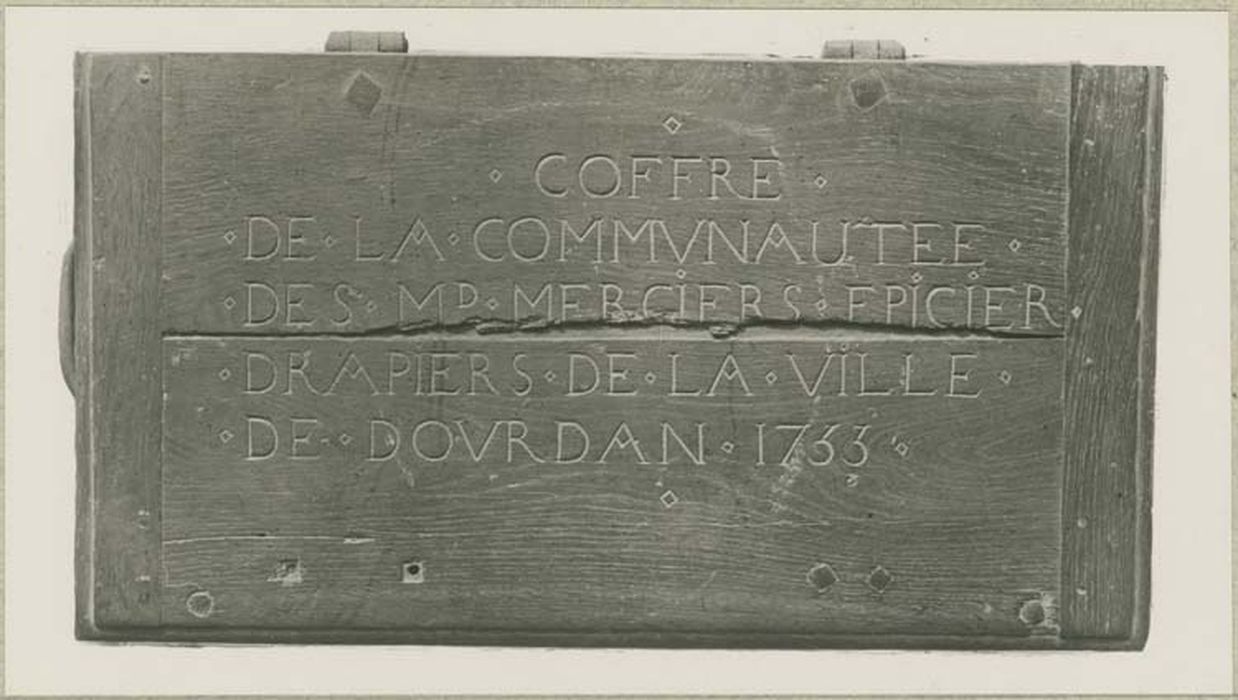 COFFRE
DE · LA · COMMVNAUTEE
DE S · MD · MERCIERS · EPICIER
DRAPIERS · DE · LA · VILLE
DE · DOVRDAN · 1733